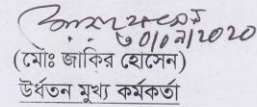 ৩০/০৯/2020
(মোঃ জাকির হোসেন)
উর্ধতন মুখ্য কর্মকর্তা